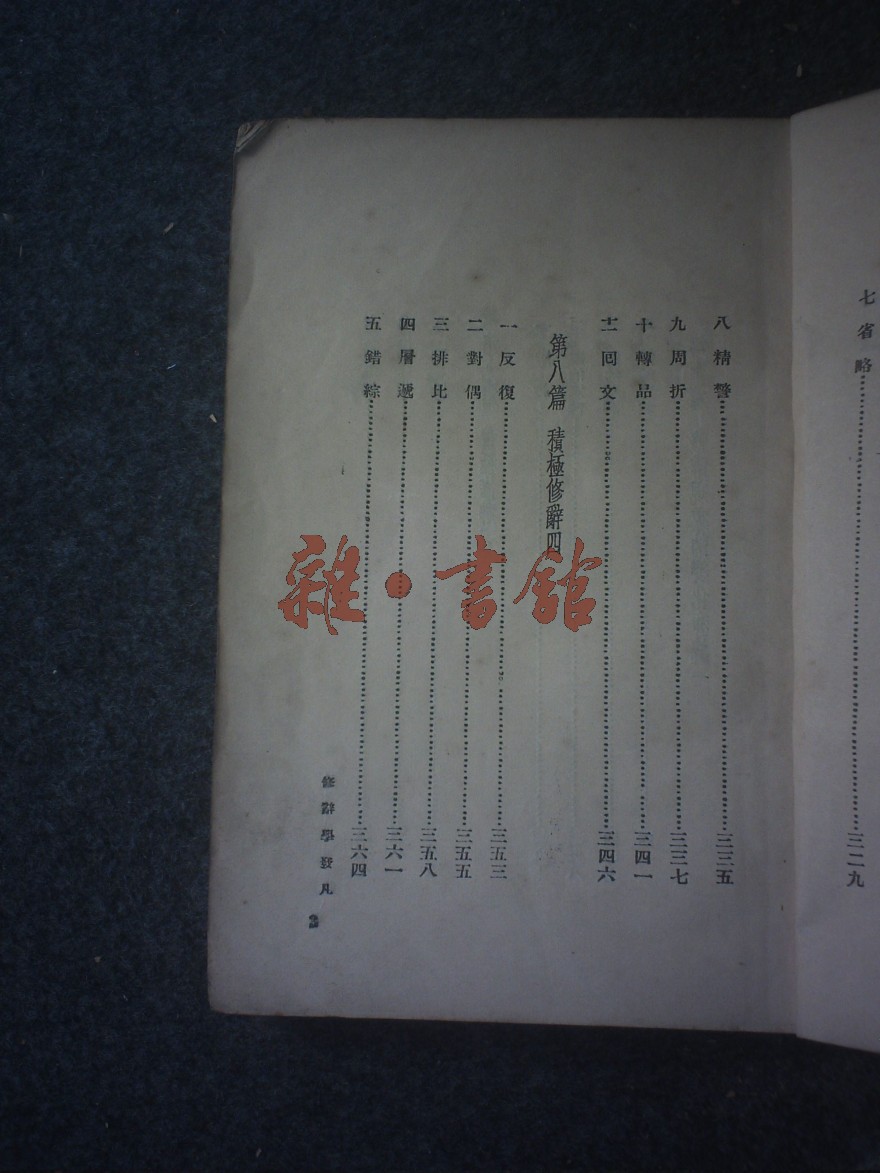 七省略……三二九
八精警……三三五
九周折……三三七
十轉品……三四一
十一回文……三四六
第八篇 積極修辭四
一反復……三五三
二對偶……三五五
三排比……三五八
四層遞……三六一
五錯綜……三六四
修辭學發凡
雜·書館